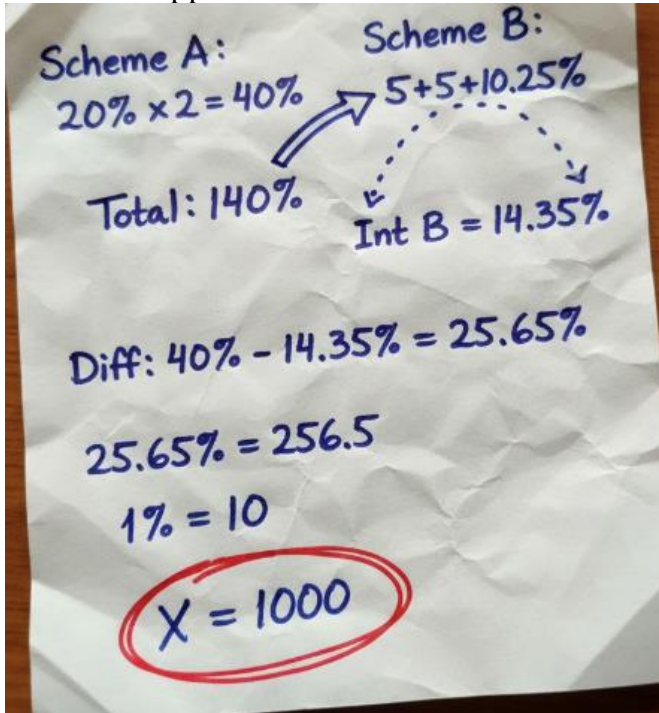 Scheme A:
20% × 2 = 40%
Total: 140%
Scheme B:
5+5+10.25%
Int B = 14.35%
Diff: 40% - 14.35% = 25.65%
25.65% = 256.5
1% = 10
X = 1000